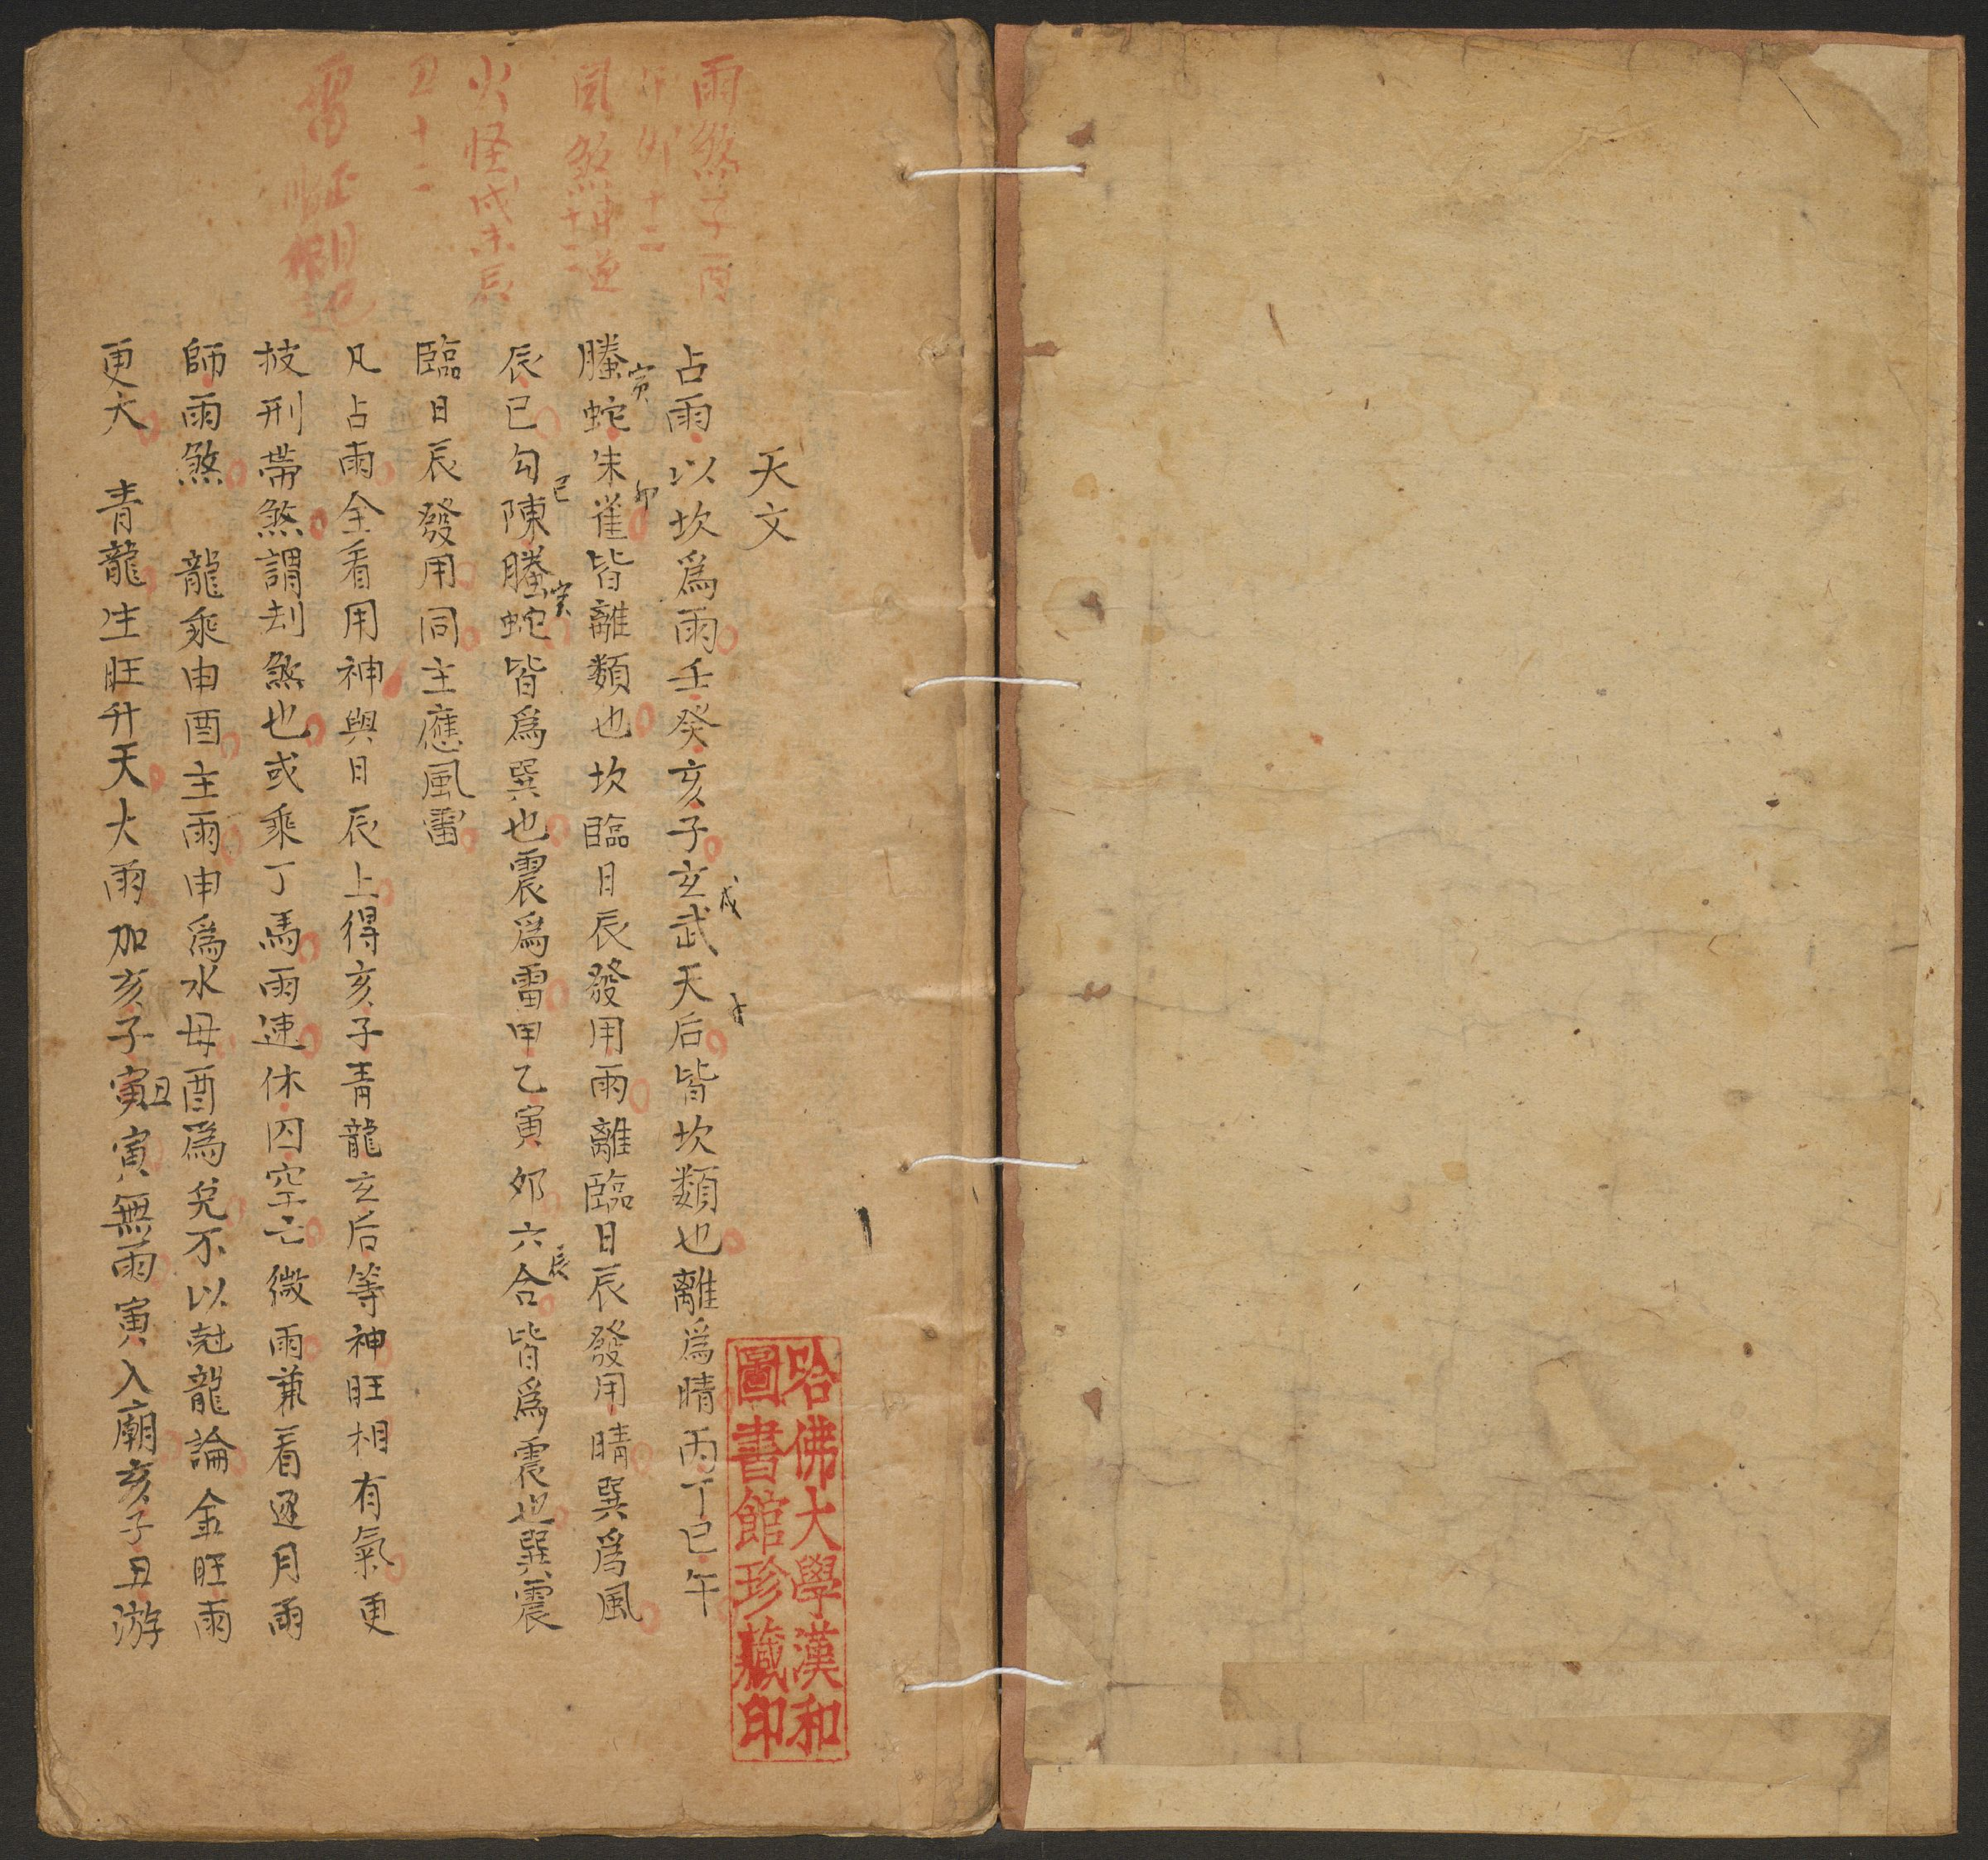 天文
占雨以坎爲雨壬癸亥子玄武天后皆坎類也離爲晴丙丁巳午
戌
子
螣蛇朱雀皆離類也坎臨日辰發用雨離臨日辰發用晴巽爲風
寅
卯
辰巳勾陳螣蛇皆爲巽也震爲雷甲乙寅卯六合皆爲震也巽震
巳
寅
辰
臨日辰發用同主應風雷
凡占雨全看用神與日辰上得亥子青龍玄后等神旺相有氣更
披刑帶煞謂刦煞也或乘丁馬雨速休囚空亡微雨兼看逐月雨
師雨煞 龍乘申酉主雨申爲水母酉爲兌不以尅龍論金旺雨
更大 青龍生旺升天大雨加亥子寅寅無雨寅入廟亥子丑游
丑
雨煞子酉
午卯十二
風煞申逆
十二
火怪戌未辰
丑十二
雷
哈佛大學漢和
圖書館珍藏印